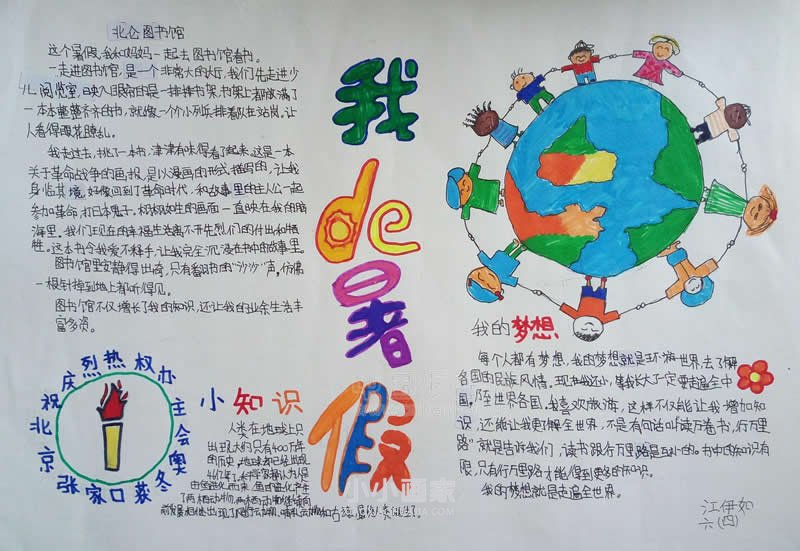 北仑图书馆
这个暑假,我和妈妈一起去图书馆看书。
一走进图书馆,是一个非常大的大厅,我们先走进少
儿阅览室,映入眼帘的是一排排书架,书架上都放满了
一本本整整齐齐的书,就像一个个小列兵排着队在站岗,让
人看得眼花瞭乱。
我走过去,挑了一本书,津津有味得看了起来,这是一本
关于革命战争的画报,是以漫画的形式描写的,让我
身临其境,好像回到了革命时代,和故事里的主人公一起
参加革命,打日本鬼子。栩栩如生的画面一直映在我的脑
海里,我们现在的幸福生活离不开先烈们的付出和牺
牲。这本书令我爱不释手,让我完全沉浸在书中的故事里。
图书馆里安静得出奇,只有翻书的"沙沙"声,仿佛
一根针掉到地上都听得见。
图书馆不仅增长了我的知识,还让我的业余生活丰
富多资。
我
de
暑
假
庆祝北京张家口获冬奥会主办权热烈
小知识
人类在地球上只
出现大约只有400万年
的历史,地球却已经出现
两栖动物,
我的梦想
每个人都有梦想,我的梦想就是环游世界,去了解
各国的民族风情。现在我还小,等我长大了一定要走遍全中
国,乃至世界各国,我喜欢旅游,这样不仅能让我增加知
识,还能让我更了解全世界,不是有句话叫"读万卷书,行万里
路"就是告诉我们,读书跟行万里路是互补的。书中的知识有
限,只有行万里路才能得到更多的知识。
我的梦想就是走遍全世界。
江伊如
六(四)
小小画家